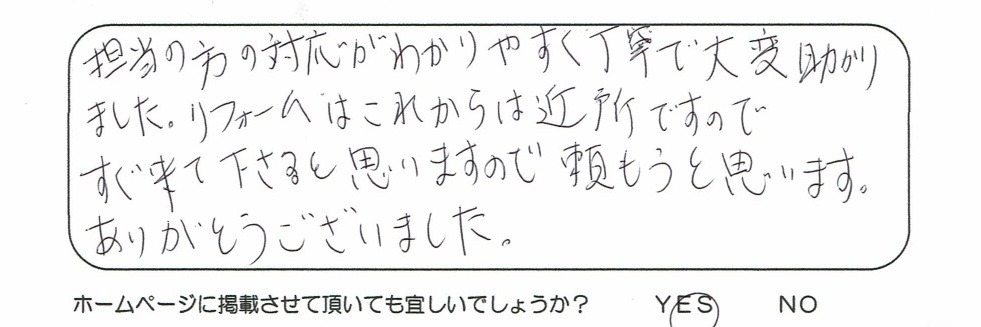 担当の方の対応がわかりやすく丁寧で大変助かり
ました。リフォームはこれからは近所ですので
すぐ来て下さると思いますので頼もうと思います。
ありがとうございました。
ホームページに掲載させて頂いても宜しいでしょうか？ YES NO